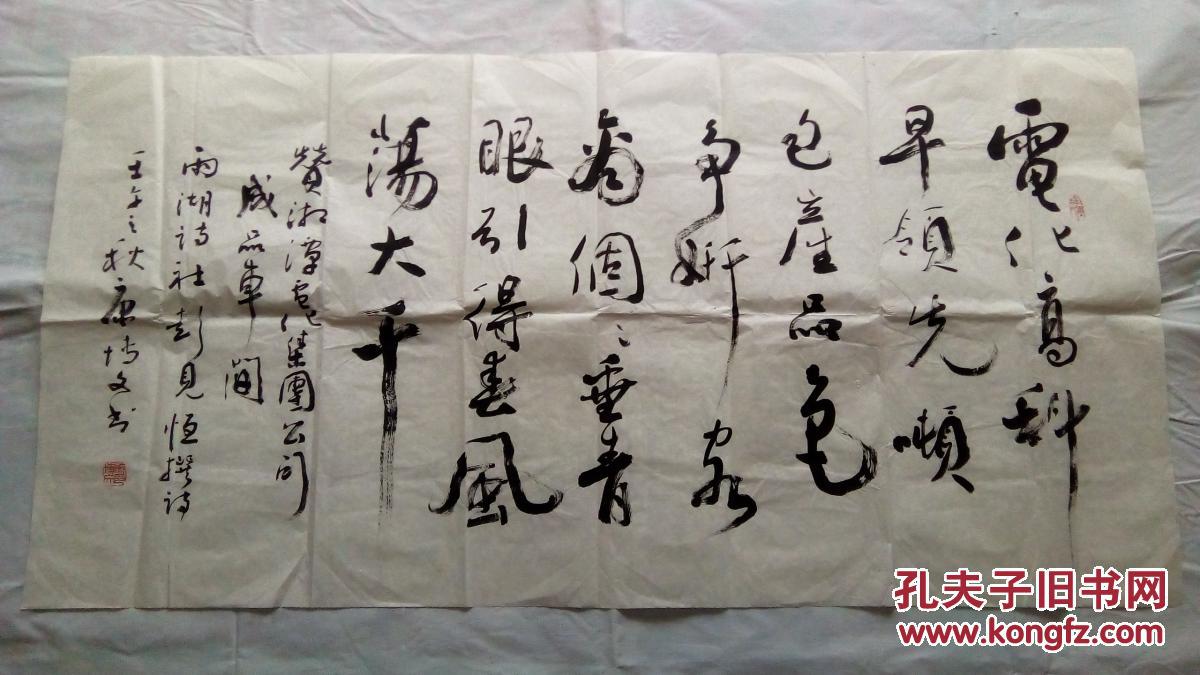 電化高科
早領先噸
包產品色
争妍客
商個〻垂青
眼引得春風
蕩大千
贊湘潭電化集團公司
成品車間
雨湖詩社彭見恒撰詩
壬午之秋康博文书
孔夫子旧书网
www.kongfz.com